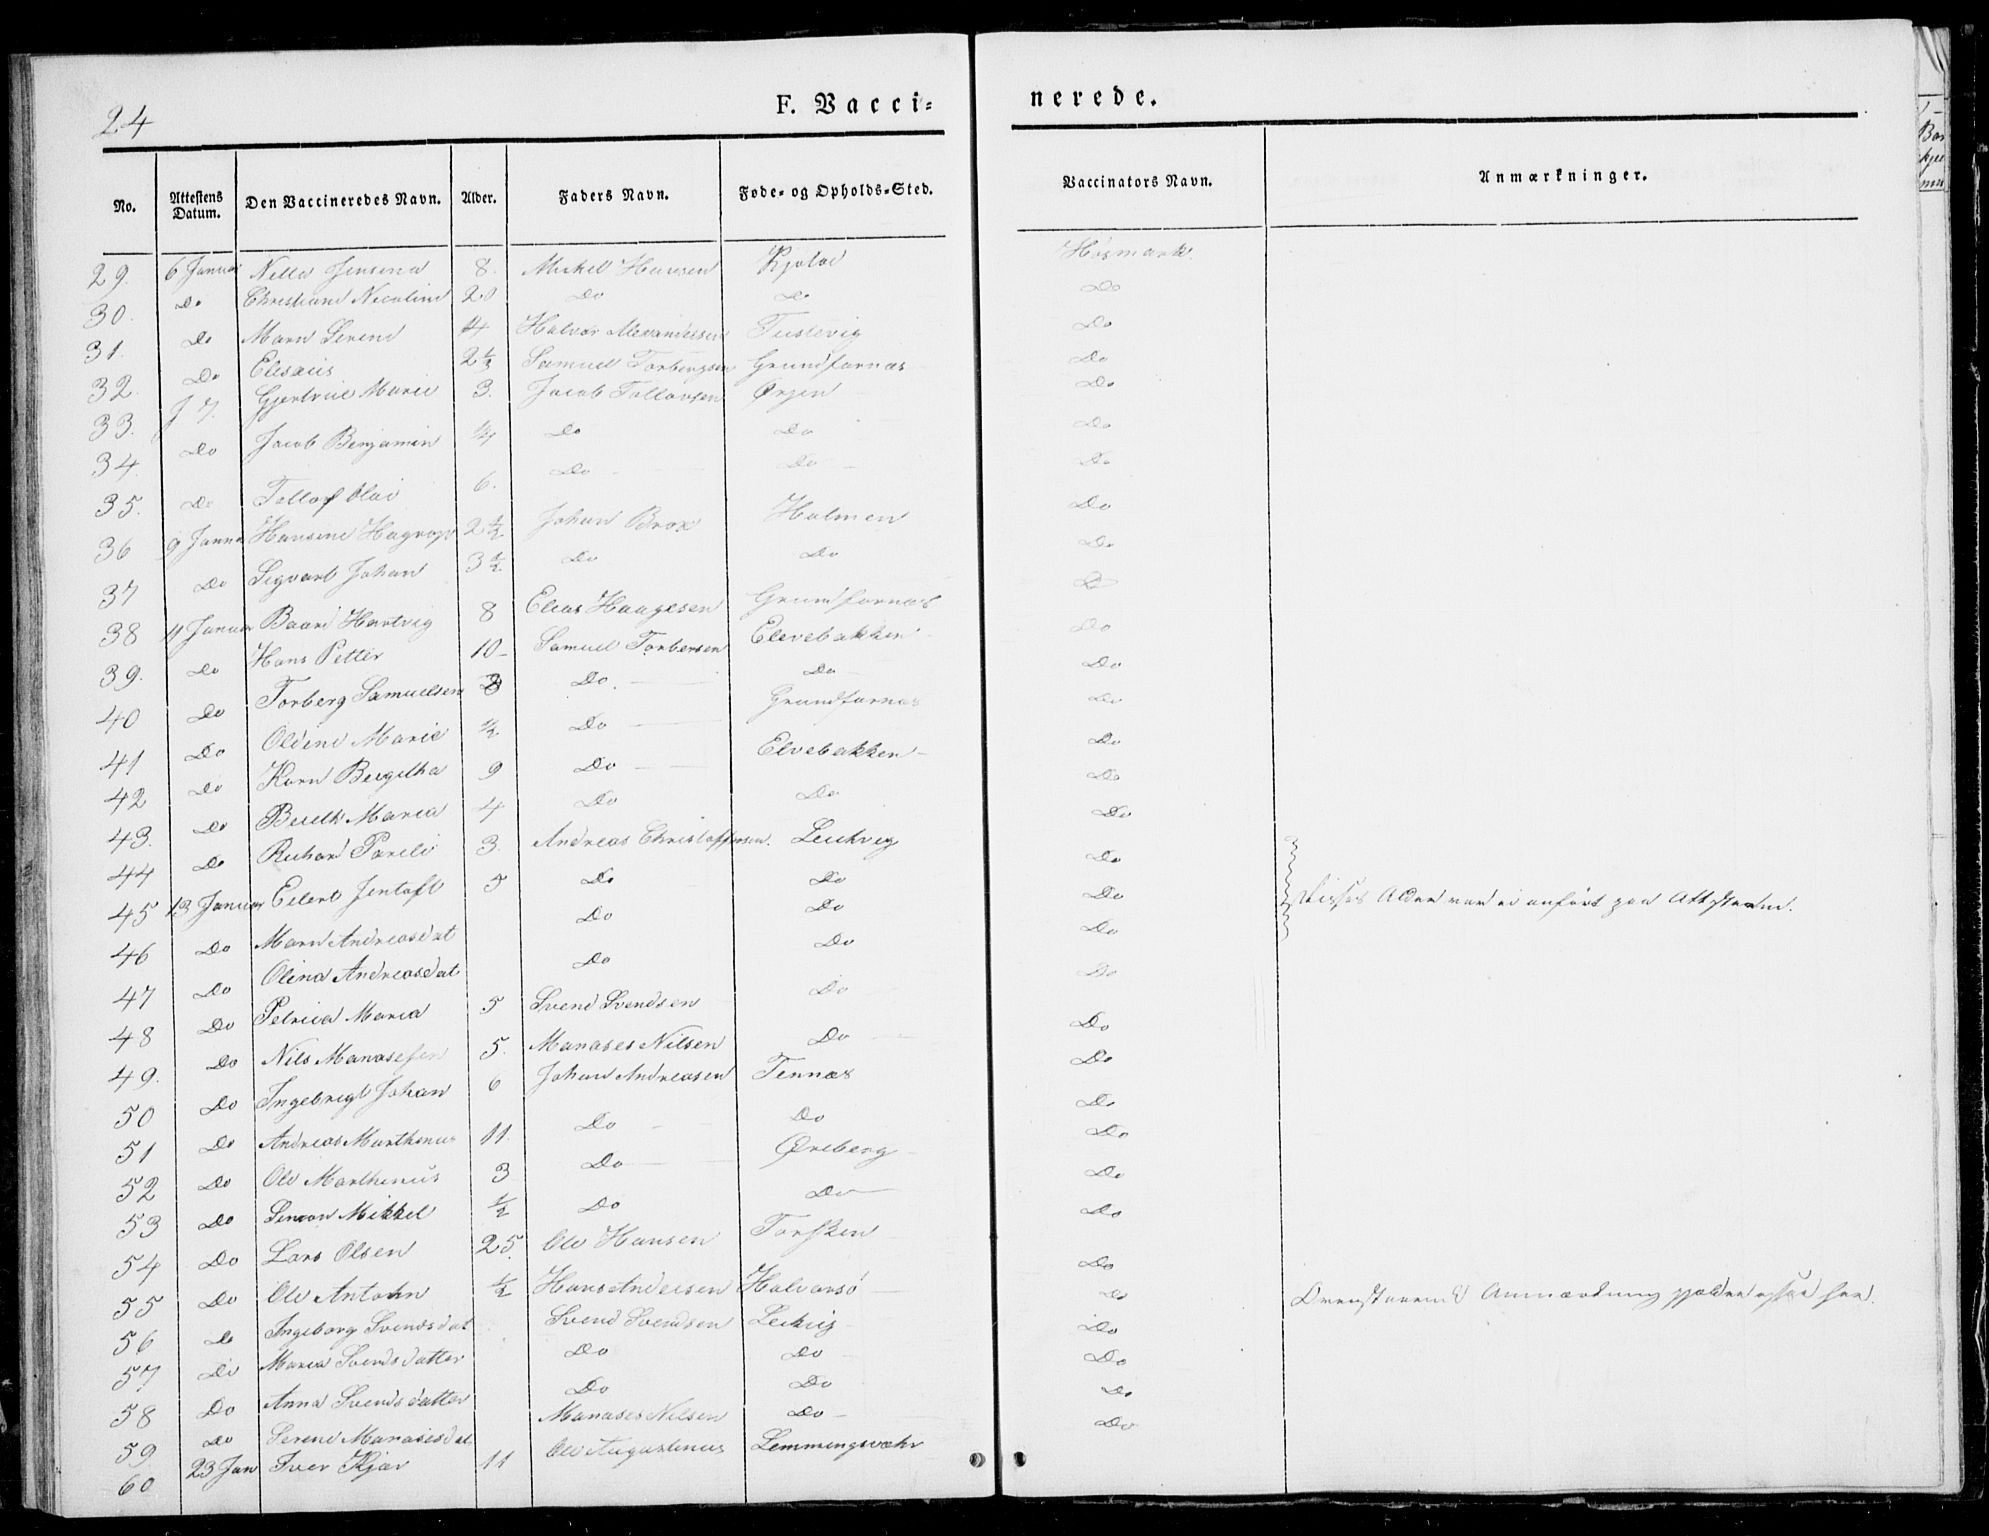 24
F. Vacci=
nerede.
No.
Attestens Datum.
Den Vaccineredes Navn.
Alder.
Faders Navn.
Føde= og Opholds=Sted.
Vaccinators Navn.
Anmærkninger.
29. 6 Januar Jensena 8. Mikel Hansen Kjøløe Høsmark
30. Do Christiane Nicoline 20 Do Do Do
31. Do Marn Serene Halvor Alexandersen Do
32. Do Elisæus Samuel Torbergsen Grundfarnæs Do
33. 7. Gjertrue Marie 3. Jacob Tollovsen Ørjen Do
34. Do Jacob Benjamin Do Do Do
35. Do Tollof Olai 6. Do Do Do
36 9 Janua Hansine 2½ Johan Brox Holmen Do
37 Do Sigvart Johan 3½ Do Do Do
38 11 Januar Baard Hartvig 8 Elias Haagesen Grundfarnæs Do
39. Do Hans Petter 10 Samuel Torbersen Elevebakken Do
40 Do Torberg Samuelsen Do Do Do
41 Do Oldine Marie ½ Do Grundfarnæs Do
42 Do Karn Bergitha 9 Do Elvebakken Do
43. Do Bereth Maria 4 Do Do Do
44 Do Richard Pareli 3. Andreas Christoffersen. Leikvig Do
45 13 Januar Eilert Jentoft 5 Do Do Do
46 Do Marn Andreasdat Do Do Do
Disses Alder var ei anført paa Attesterne.
47 Do Olina Andreasdat Do Do Do
48 Do Petrica Maria 5 Svend Svendsen Do Do
49. Do Nils Manasesen 5. Manases Nilsen Do Do
50 Do Ingebrigt Johan 6 Johan Andreasen Tennæs Do
51 Do Andreas Marthinus 11. Do Do Do
52 Do Ole Marthinus 3 Do Øreberg Do
53 Do Simon Mikkel ½ Do Do Do
54 Do Lars Olsen 25. Ole Hansen Torsken Do
55 Do Ole Antohn ½ Hans Andersen Halvarsø Do
56 Do Ingeborg Svendsdat Svend Svendsen Leikvig Do
Ovenstaaende Anmærkning gjælder ogsaa her.
57 Do Maria Svendsdatter Do Do Do
58 Do Anna Svendsdatter Do Do Do
59 Do Serene Manasesdat Manases Nilsen Do Do
60 23 Jan Iver Kjær 11 Ole Augustinus Lemmingsvæhr Do